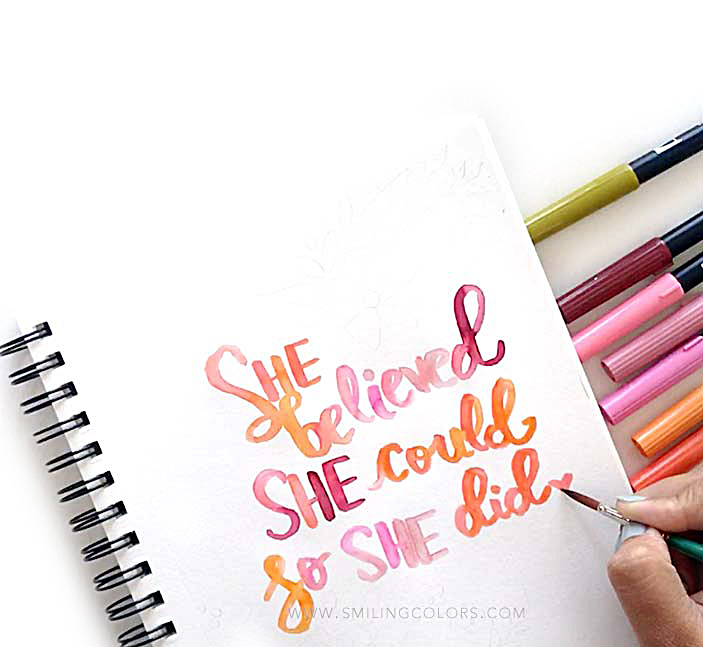 SHE
believed
SHE could
so SHE did
WWW.SMILINGCOLORS.COM